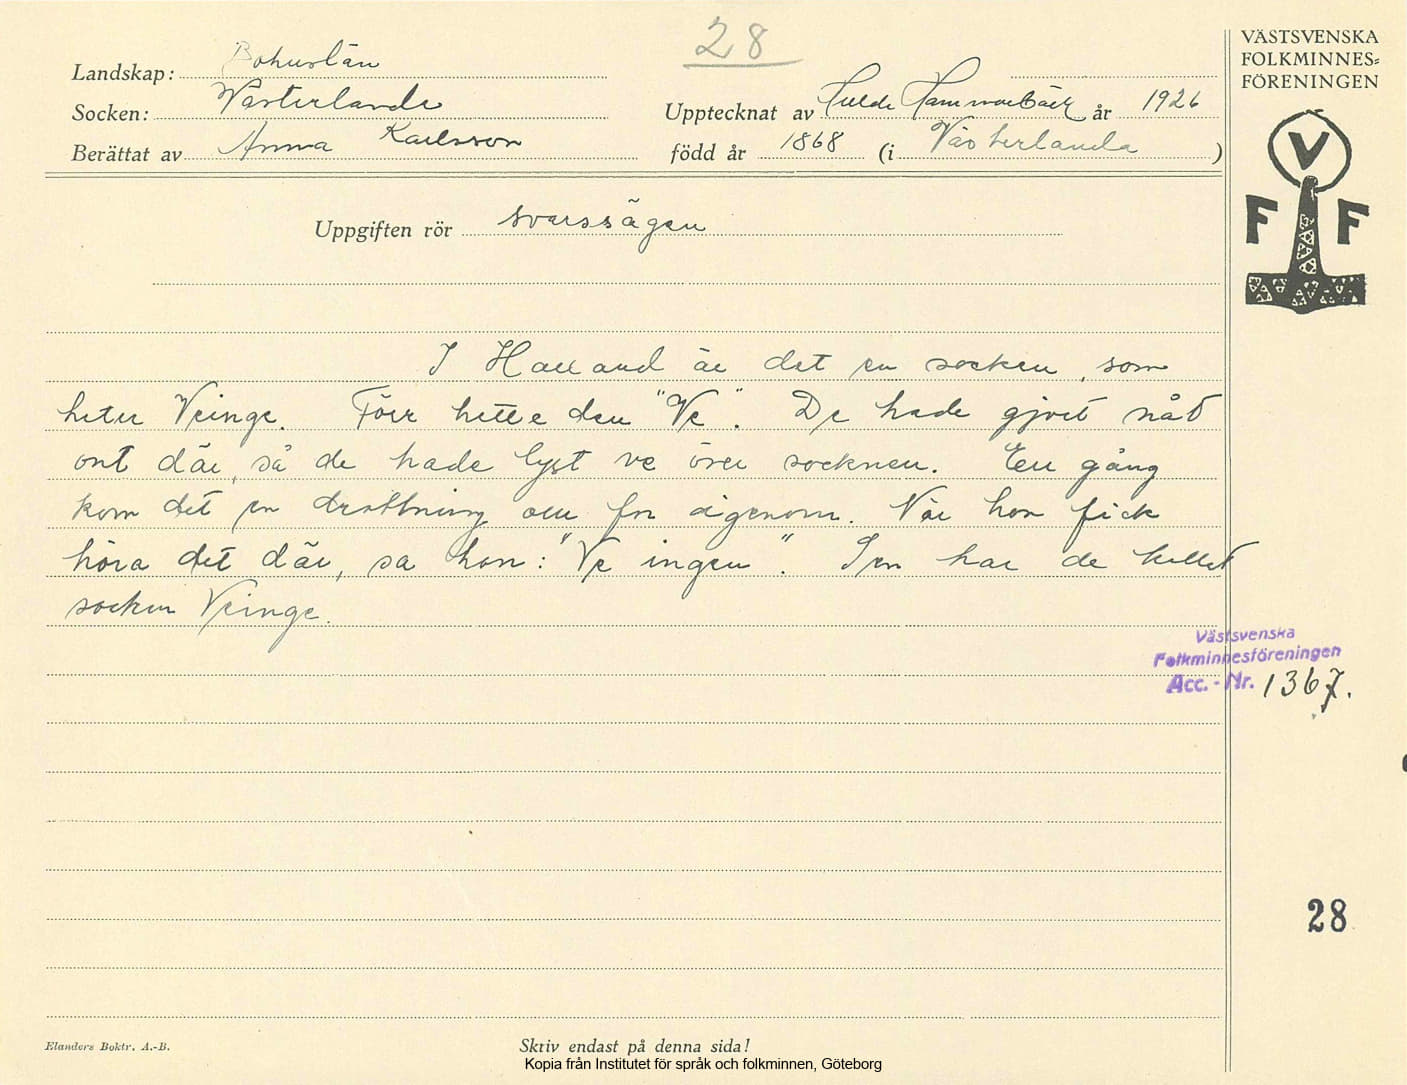 28
VÄSTSVENSKA
FOLKMINNES=
FÖRENINGEN
Landskap: Bohuslän
Socken: Västerlanda
Upptecknat av Hulda Hammarbäck år 1926
Berättat av Anna Karlsson
född år 1868 (i Västerlanda)
V
F F
Uppgiften rör svarssägen
I Halland är det en socken, som
heter Veinge. Förr hette den "Ve". De hade gjort nåt
ont där, så de hade lyst ve över socknen. En gång
kom det en drottning och for igenom. När hon fick
höra det där, sa hon: "Ve ingen". Sen har de kallat
socken Veinge.
Västsvenska
Folkminnesföreningen
Acc. - Nr. 1367.
28
Elanders Boktr. A.-B.
Skriv endast på denna sida!
Kopia från Institutet för språk och folkminnen, Göteborg